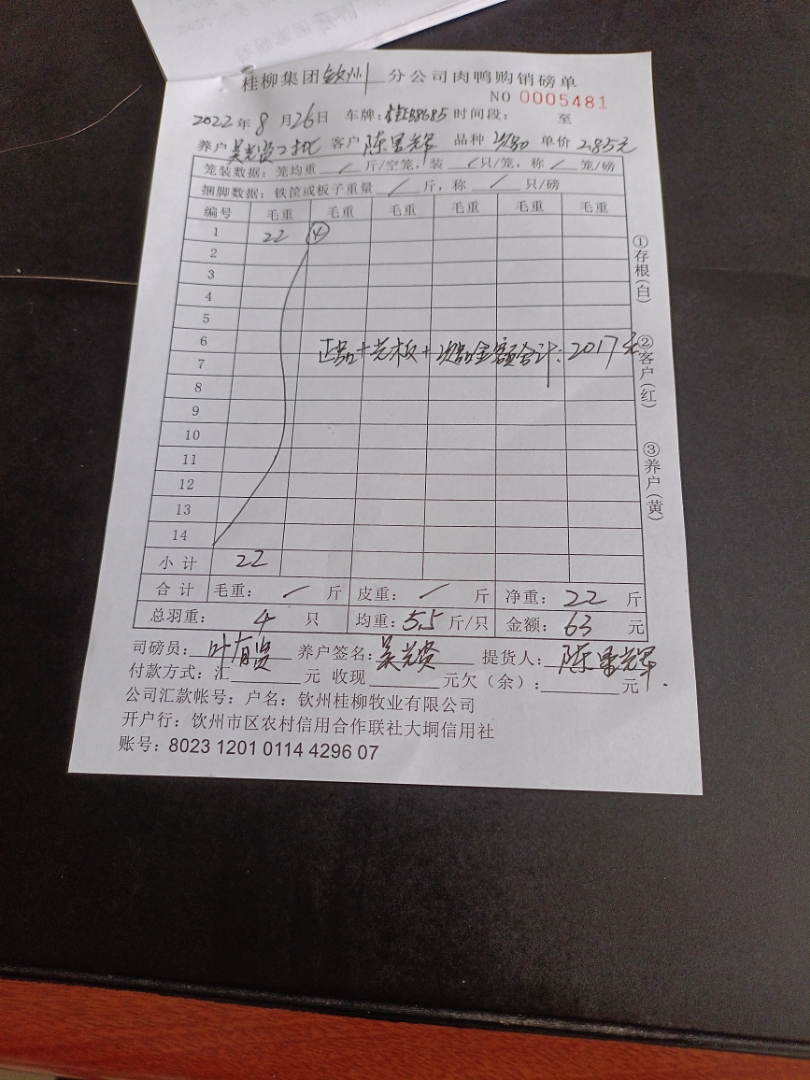 桂柳集团 钦州 分公司肉鸭购销磅单
NO 0005481
2022年8月26日 车牌: 时间段: 至
养户 吴光贤 客户 陈 辉 品种 单价 2.85元
笼装数据: 笼均重 / 斤/空笼, 装 / 只/笼, 称 / 笼/磅
捆脚数据: 铁筐或板子重量 / 斤, 称 / 只/磅
编号 毛重 毛重 毛重 毛重 毛重 毛重
1 22 ④
2
3
4
5
6
正品+光板+次品金额合计: 2017元
7
8
9
10
11
12
13
14
小计 22
合计 毛重: / 斤 皮重: / 斤 净重: 22 斤
总羽重: 4 只 均重: 5.5 斤/只 金额: 63 元
司磅员: 叶有贤 养户签名: 吴光贤 提货人: 陈 辉
付款方式: 汇 元 收现 元欠(余): 元
公司汇款帐号: 户名: 钦州桂柳牧业有限公司
开户行: 钦州市区农村信用合作联社大垌信用社
账号: 8023 1201 0114 4296 07
①存根(白)
②客户(红)
③养户(黄)